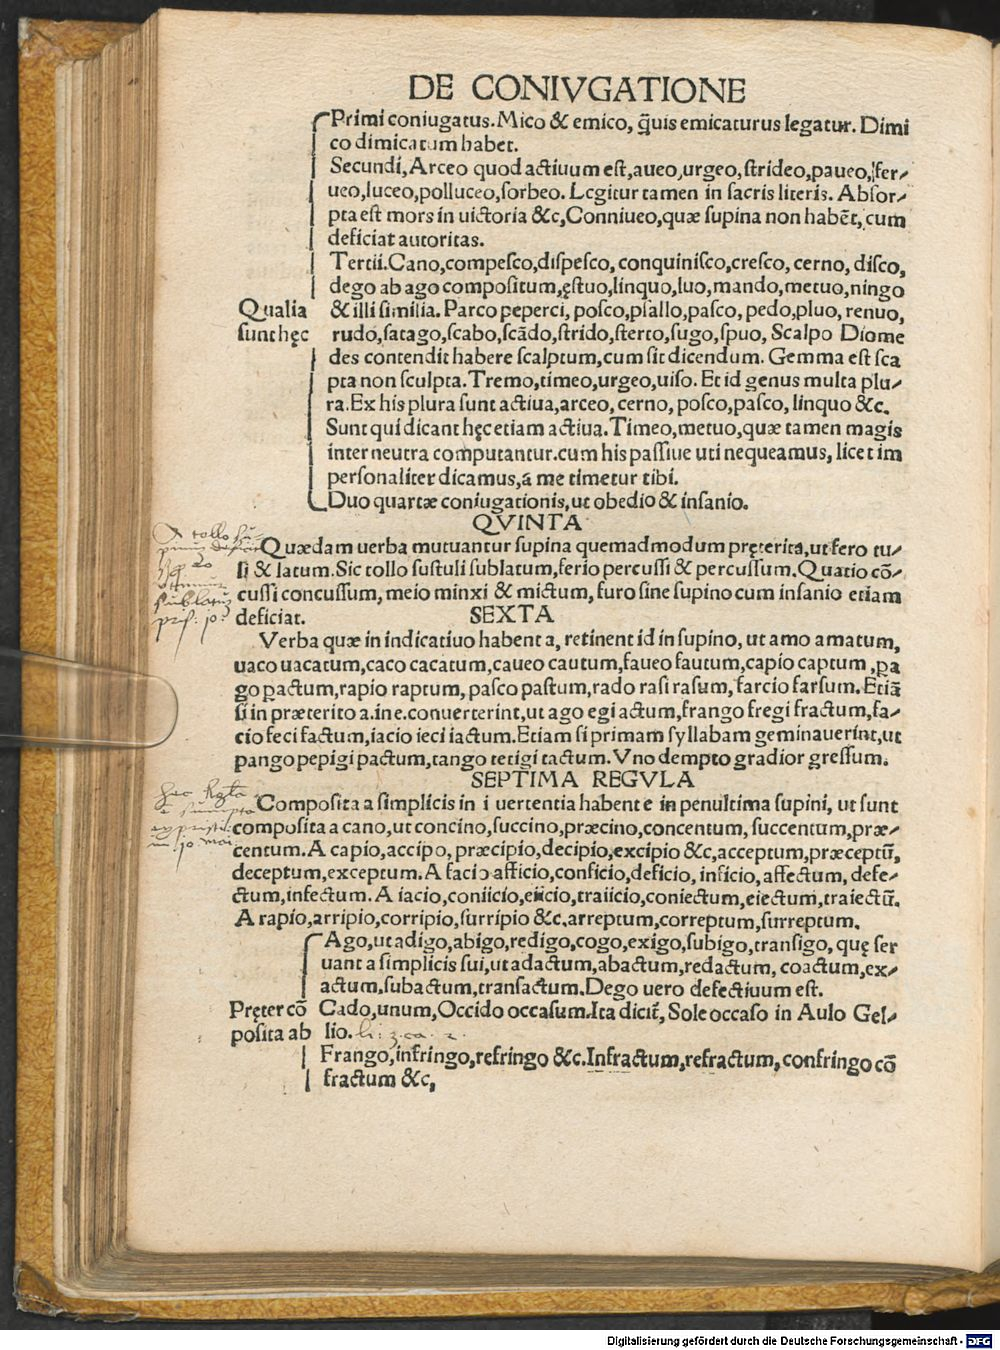 DE CONIVGATIONE
Primi coniugatus. Mico & emico, q̃uis emicaturus legatur. Dimi
co dimicatum habet.
Secundi, Arceo quod actiuum est, aueo, urgeo, strideo, paueo, fer-
ueo, luceo, polluceo, sorbeo. Legitur tamen in sacris literis. Absor-
pta est mors in uictoria &c, Conniueo, quæ supina non habẽt, cum
deficiat autoritas.
Tertii. Cano, compesco, dispesco, conquinisco, cresco, cerno, disco,
dego ab ago compositum, ęstuo, linquo, luo, mando, metuo, ningo
Qualia & illi similia. Parco peperci, posco, psallo, pasco, pedo, pluo, renuo,
sunt hęc rudo, satago, scabo, scãdo, strido, sterto, sugo, spuo, Scalpo Diome
des contendit habere scalptum, cum sit dicendum. Gemma est sca
pta non sculpta. Tremo, timeo, urgeo, uiso. Et id genus multa plu-
ra. Ex his plura sunt actiua, arceo, cerno, posco, pasco, linquo &c.
Sunt qui dicant hęc etiam actiua. Timeo, metuo, quæ tamen magis
inter neutra computantur. cum his passiue uti nequeamus, licet im
personaliter dicamus, a me timetur tibi.
Duo quartæ coniugationis, ut obedio & insanio.
QVINTA
Quædam uerba mutuantur supina quemadmodum pręterita, ut fero tu-
li & latum. Sic tollo sustuli sublatum, ferio percussi & percussum. Quatio cõ-
cussi concussum, meio minxi & mictum, furo sine supino cum insanio etiam
deficiat. SEXTA
Verba quæ in indicatiuo habent a, retinent id in supino, ut amo amatum,
uaco uacatum, caco cacatum, caueo cautum, faueo fautum, capio captum, pa
go pactum, rapio raptum, pasco pastum, rado rasi rasum, farcio farsum. Etiã
si in præterito a. in e. conuerterint, ut ago egi actum, frango fregi fractum, fa-
cio feci factum, iacio ieci iactum. Etiam si primam syllabam geminauerint, ut
pango pepigi pactum, tango tetigi tactum. Vno dempto gradior gressum.
SEPTIMA REGVLA
Composita a simplicis in i uertentia habent e in penultima supini, ut sunt
composita a cano, ut concino, succino, præcino, concentum, succentum, præ-
centum. A capio, accipo, præcipio, decipio, excipio &c, acceptum, præceptũ,
deceptum, exceptum. A facio afficio, conficio, deficio, inficio, affectum, defe-
ctum, infectum. A iacio, coniicio, eiicio, traiicio, coniectum, eiectum, traiectũ.
A rapio, arripio, corripio, surripio &c. arreptum, correptum, surreptum.
Ago, ut adigo, abigo, redigo, cogo, exigo, subigo, transigo, quę ser
uant a simplicis sui, ut adactum, abactum, redactum, coactum, ex-
actum, subactum, transactum. Dego uero defectiuum est.
Pręter cõ Cado, unum, Occido occasum. Ita dicit̃, Sole occaso in Aulo Gel-
posita ab lio. li: 3. ca. 2.
Frango, infringo, refringo &c. Infractum, refractum, confringo cõ
fractum &c,
Digitalisierung gefördert durch die Deutsche Forschungsgemeinschaft - DFG